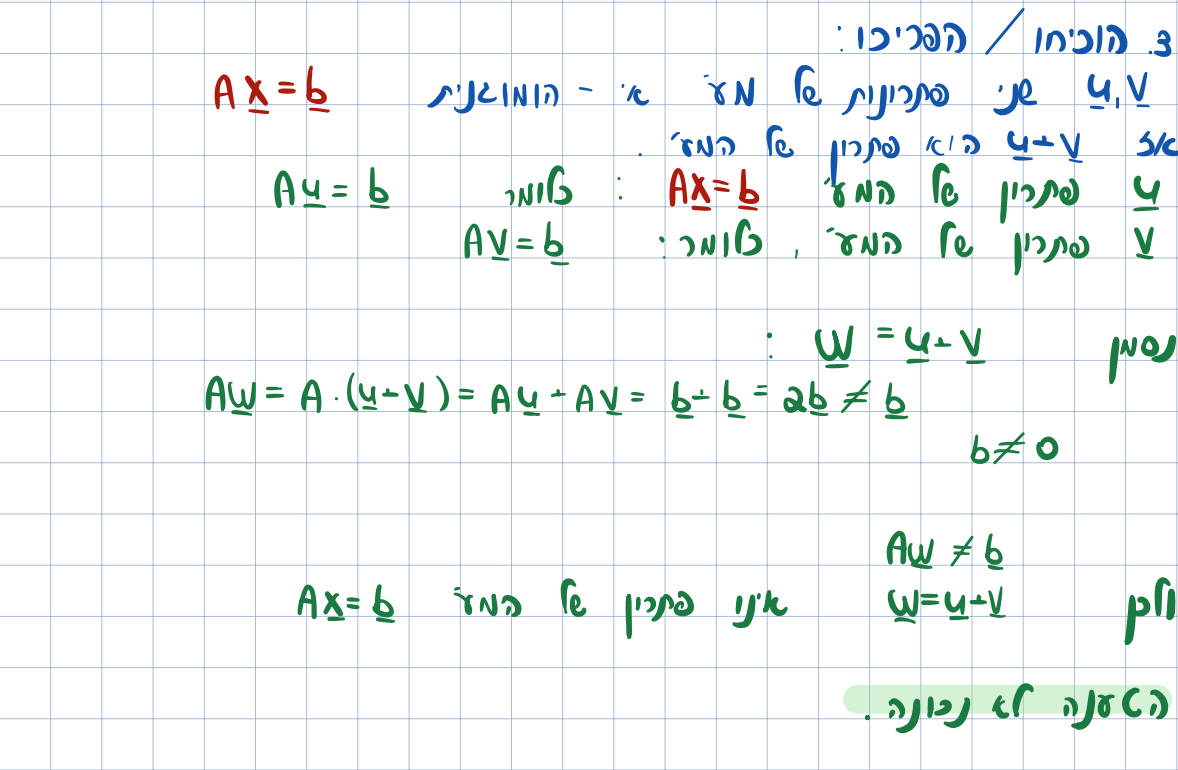 3. הוכיחו / הפריכו :
u, v שני פתרונות של מע' אי - הומוגנית Ax = b
אז u+v הוא פתרון של המע' .
u פתרון של המע' Ax=b : כלומר Au = b
v פתרון של המע' , כלומר : Av = b
נסמן w = u+v :
Aw = A·(u+v) = Au + Av = b+b = 2b ≠ b
b ≠ 0
Aw ≠ b
ולכן w=u+v אינו פתרון של המע' Ax=b
הטענה לא נכונה .